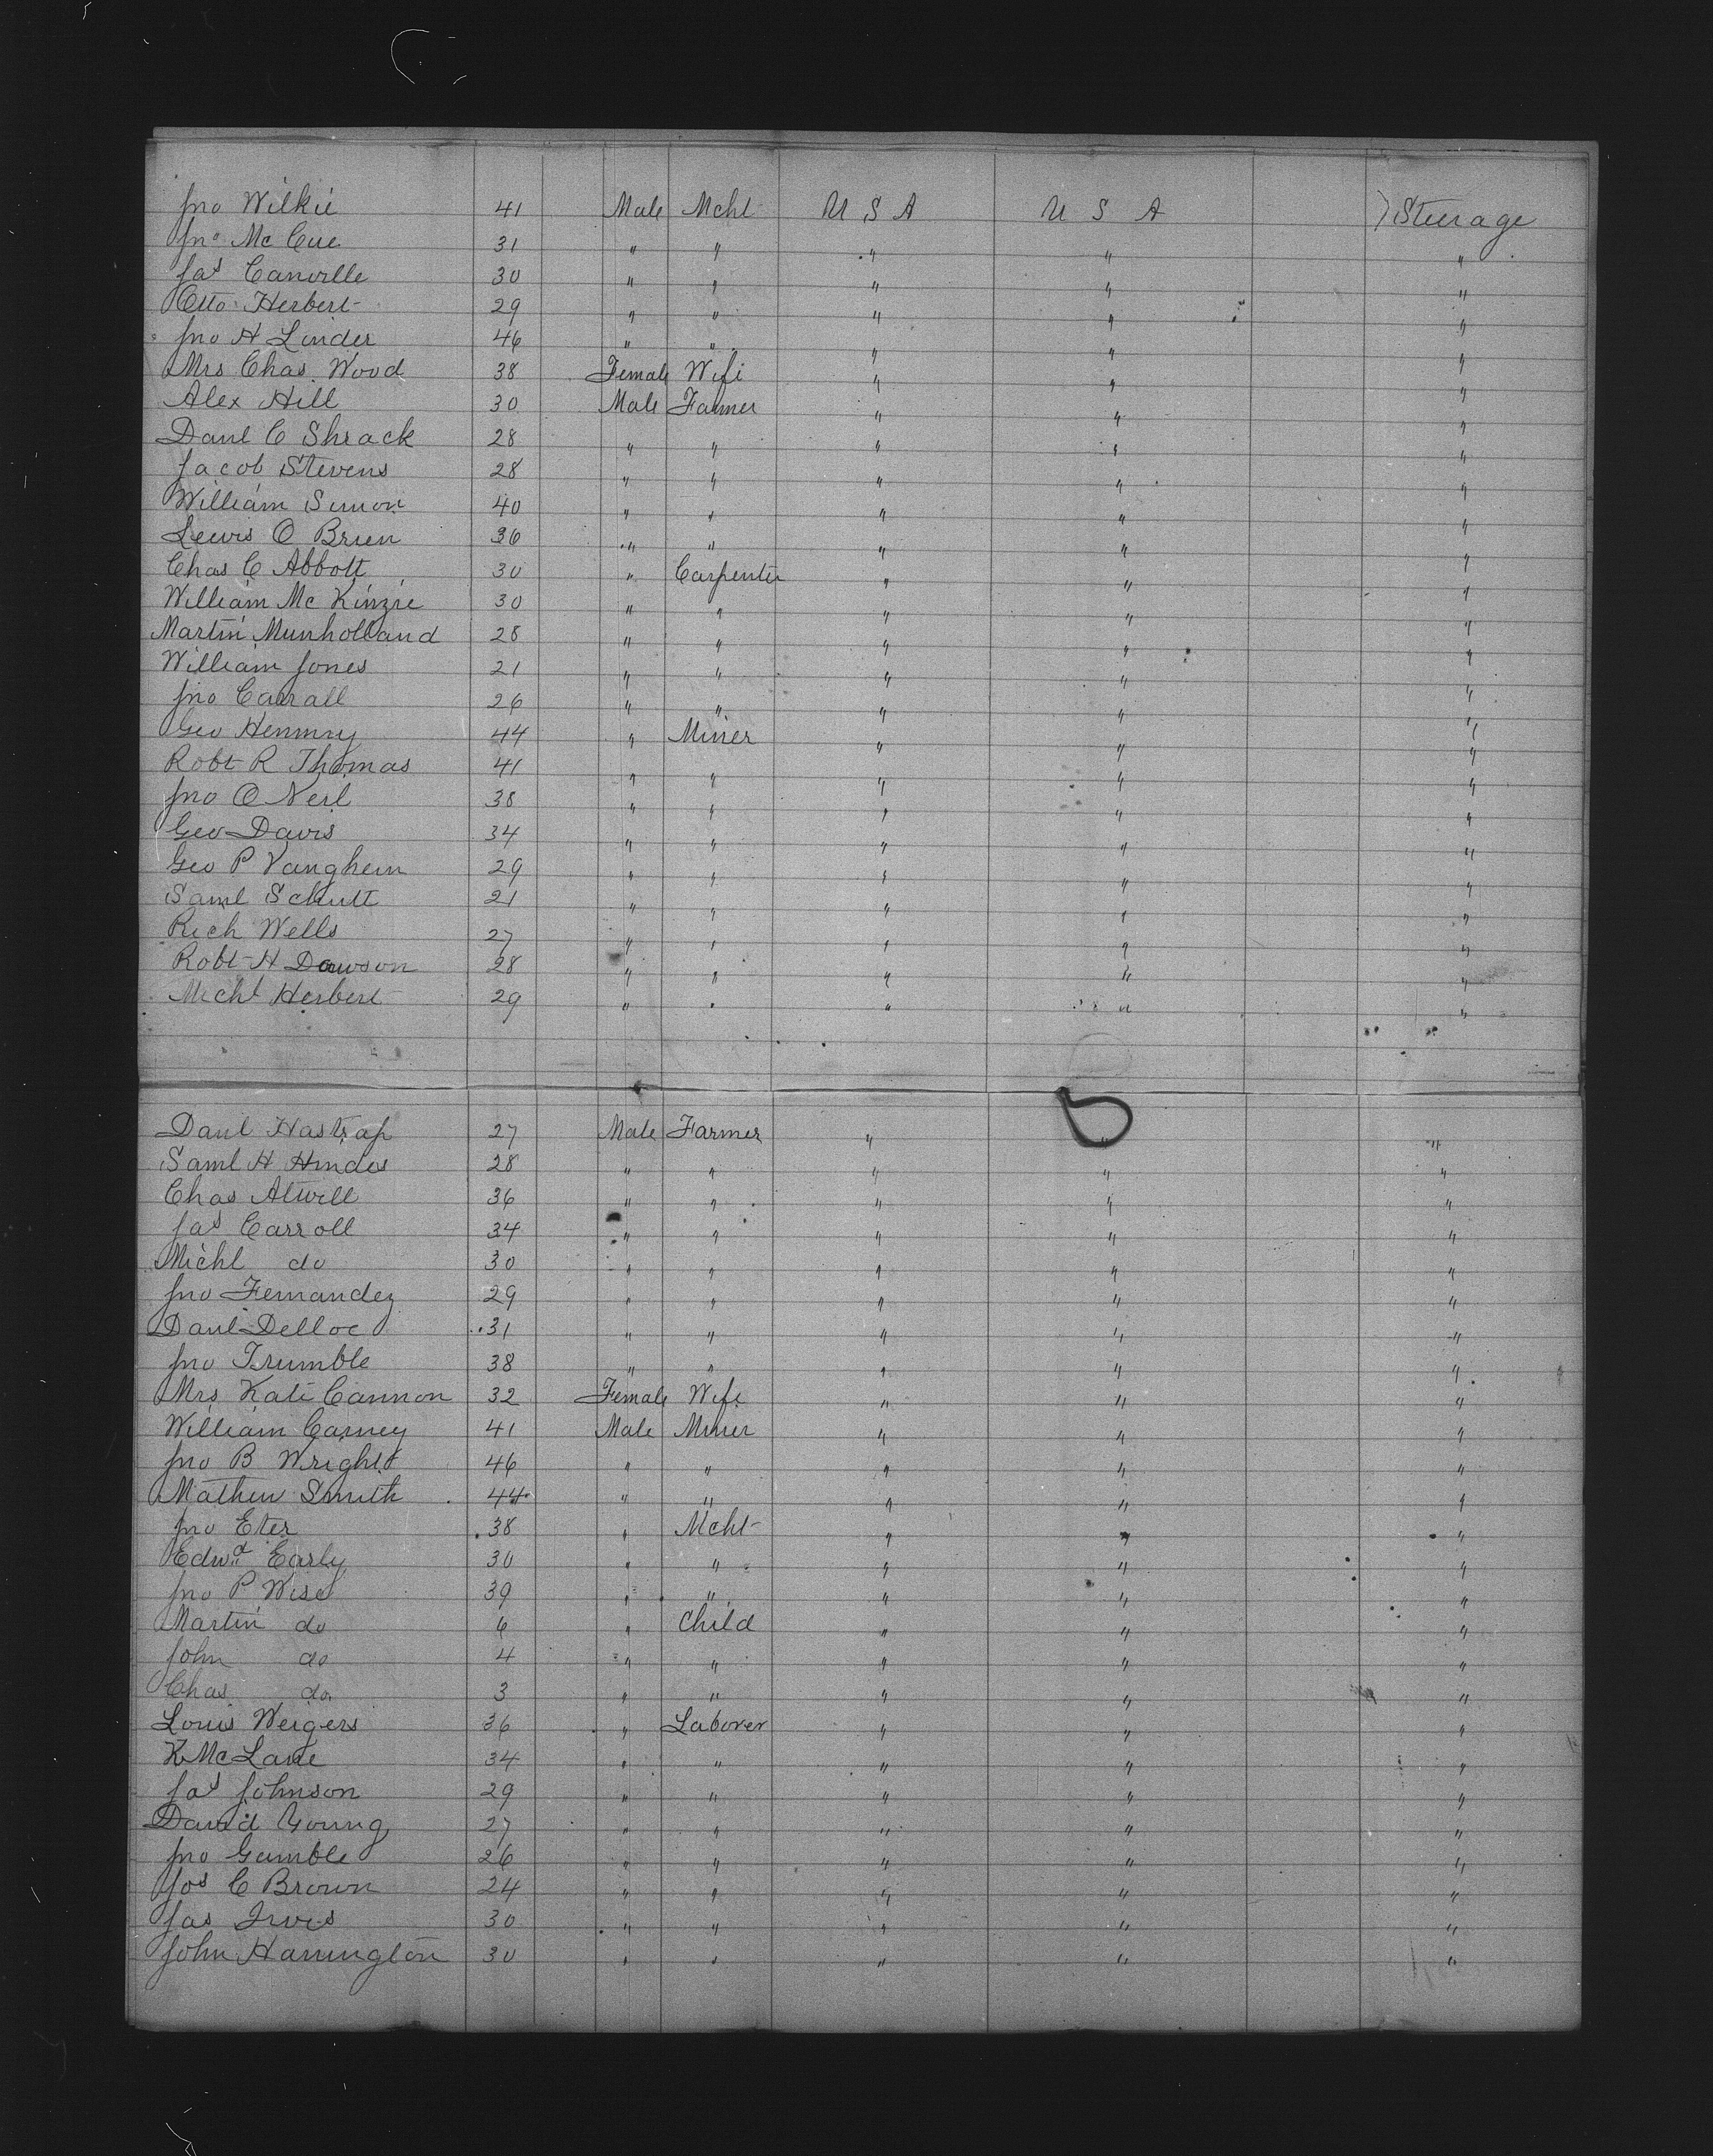 Jno Wilkie 41 Male Mcht U S A U S A Steerage
Jno Mc Cue 31 " " " " "
Jas Canville 30 " " " " "
Otto Herbert 29 " " " " "
Jno H Linder 46 " " " " "
Mrs Chas Wood 38 Female Wife " " "
Alex Hill 30 Male Farmer " " "
Danl C Shrack 28 " " " " "
Jacob Stevens 28 " " " " "
William Simon 40 " " " " "
Lewis O Brien 36 " " " " "
Chas C Abbott 30 " Carpenter " " "
William Mc Kinzie 30 " " " " "
Martin Munholland 28 " " " " "
William Jones 21 " " " " "
Jno Carrall 26 " " " " "
Geo Henmry 44 " Miner " " "
Robt R Thomas 41 " " " " "
Jno O Neil 38 " " " " "
Geo Davis 34 " " " " "
Geo P Vanghein 29 " " " " "
Saml Schutt 21 " " " " "
Rich Wells 27 " " " " "
Robt H Dawson 28 " " " " "
Michl Herbert 29 " " " " "
Danl Hastrap 27 Male Farmer " " "
Saml H Hindes 28 " " " " "
Chas Atwill 36 " " " " "
Jas Carroll 34 " " " " "
Michl do 30 " " " " "
Jno Fernandez 29 " " " " "
Danl Delloc 31 " " " " "
Jno Trumble 38 " " " " "
Mrs Kate Cannon 32 Female Wife " " "
William Carney 41 Male Miner " " "
Jno B Wright 46 " " " " "
Mathew Smith 44 " " " " "
Jno Eter 38 " Mcht " " "
Edwd Early 30 " " " " "
Jno P Wise 39 " " " " "
Martin do 6 " Child " " "
John do 4 " " " " "
Chas do 3 " " " " "
Louis Weigers 36 " Laborer " " "
K Mc Lane 34 " " " " "
Jas Johnson 29 " " " " "
David Young 27 " " " " "
Jno Gamble 26 " " " " "
Jos C Brown 24 " " " " "
Jas Irves 30 " " " " "
John Harrington 30 " " " " "